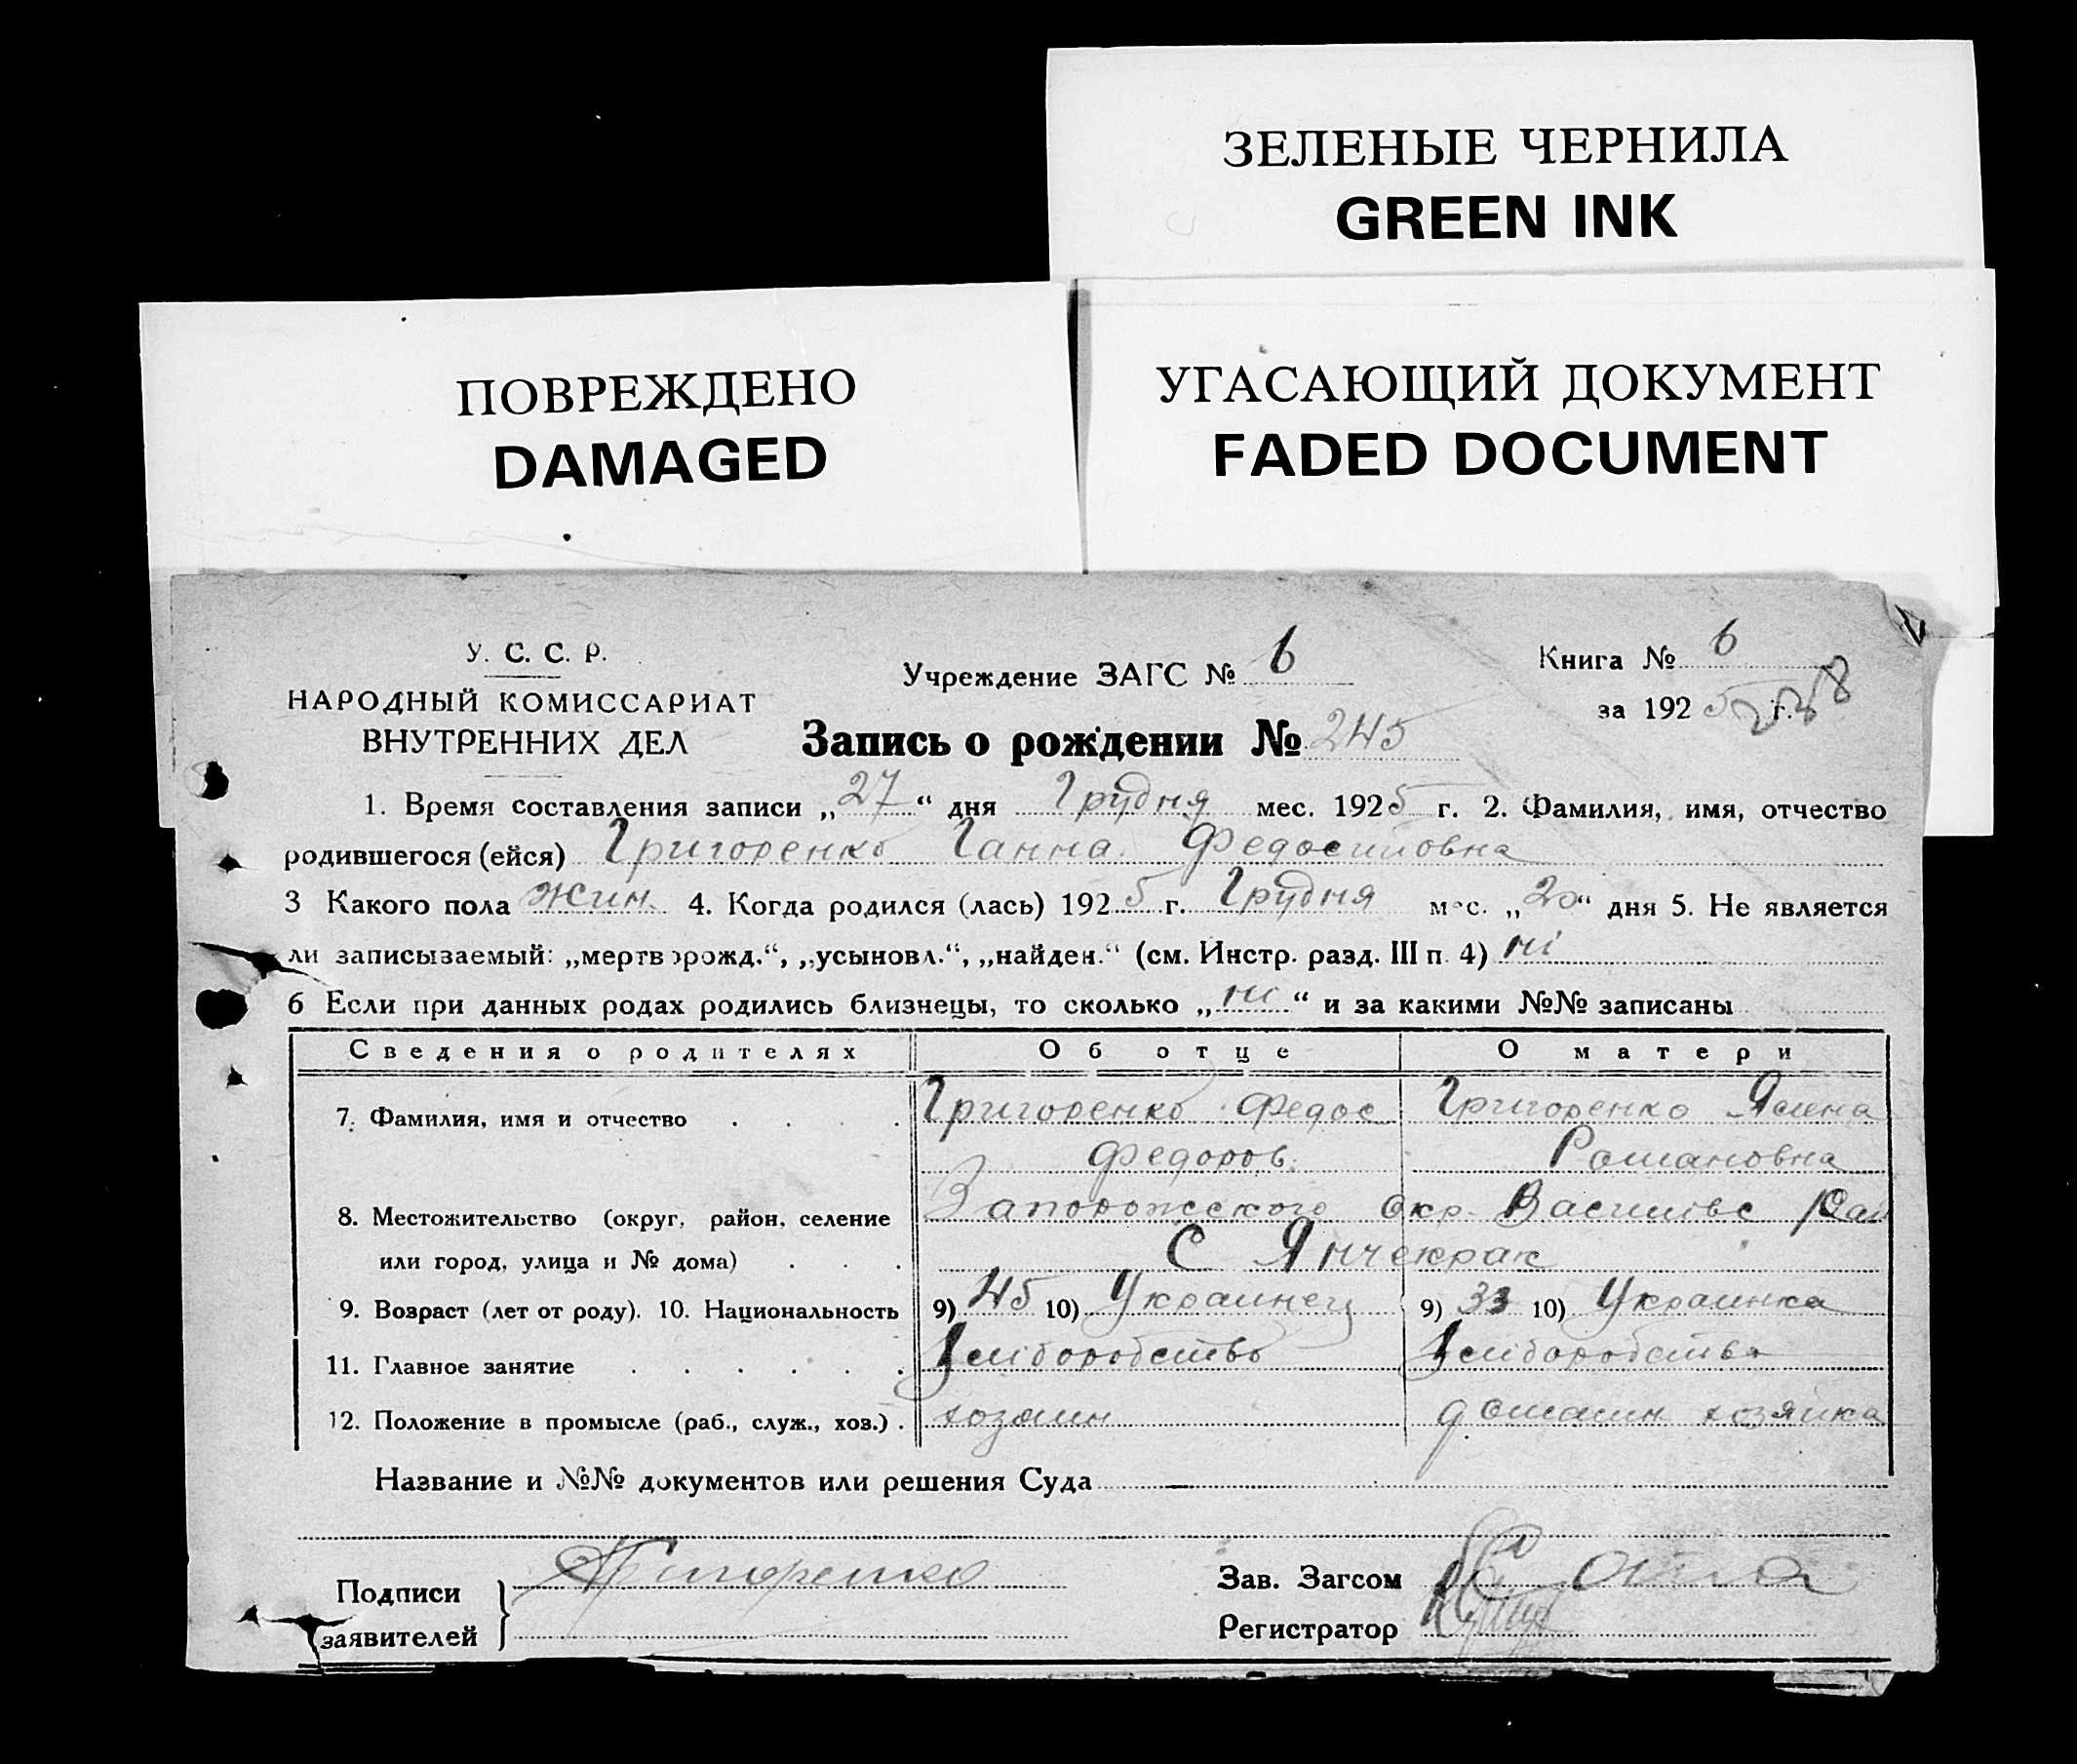 ЗЕЛЕНЫЕ ЧЕРНИЛА
GREEN INK
ПОВРЕЖДЕНО
DAMAGED
УГАСАЮЩИЙ ДОКУМЕНТ
FADED DOCUMENT
У. С. С. Р.
НАРОДНЫЙ КОМИССАРИАТ
ВНУТРЕННИХ ДЕЛ
Учреждение ЗАГС № 6
Книга № 6
за 1925 г.
238
Запись о рождении № 245
1. Время составления записи „27“ дня Грудня мес. 1925 г. 2. Фамилия, имя, отчество
родившегося (ейся) Григоренко Ганна Федосиивовна
3 Какого пола жин. 4. Когда родился (лась) 1925 г. Грудня мес. „20“ дня 5. Не является
ли записываемый: „мертворожд.“, „усыновл.“, „найден.“ (см. Инстр. разд. III п. 4) ні
6 Если при данных родах родились близнецы, то сколько „ні“ и за какими №№ записаны
Сведения о родителях Об отце О матери
7. Фамилия, имя и отчество Григоренко Федос Григоренко Ялена
Федоров. Романовна
8. Местожительство (округ, район, селение Запорожского Окр. Василівс Рай
или город, улица и № дома) С Янчекрак
9. Возраст (лет от роду). 10. Национальность 9) 45 10) Украинец 9) 33 10) Украинка
11. Главное занятие Хліборобство Хліборобство
12. Положение в промысле (раб., служ., хоз.) хозяин домашн хозяйка
Название и №№ документов или решения Суда
Подписи Григоренко
заявителей
Зав. Загсом
Регистратор